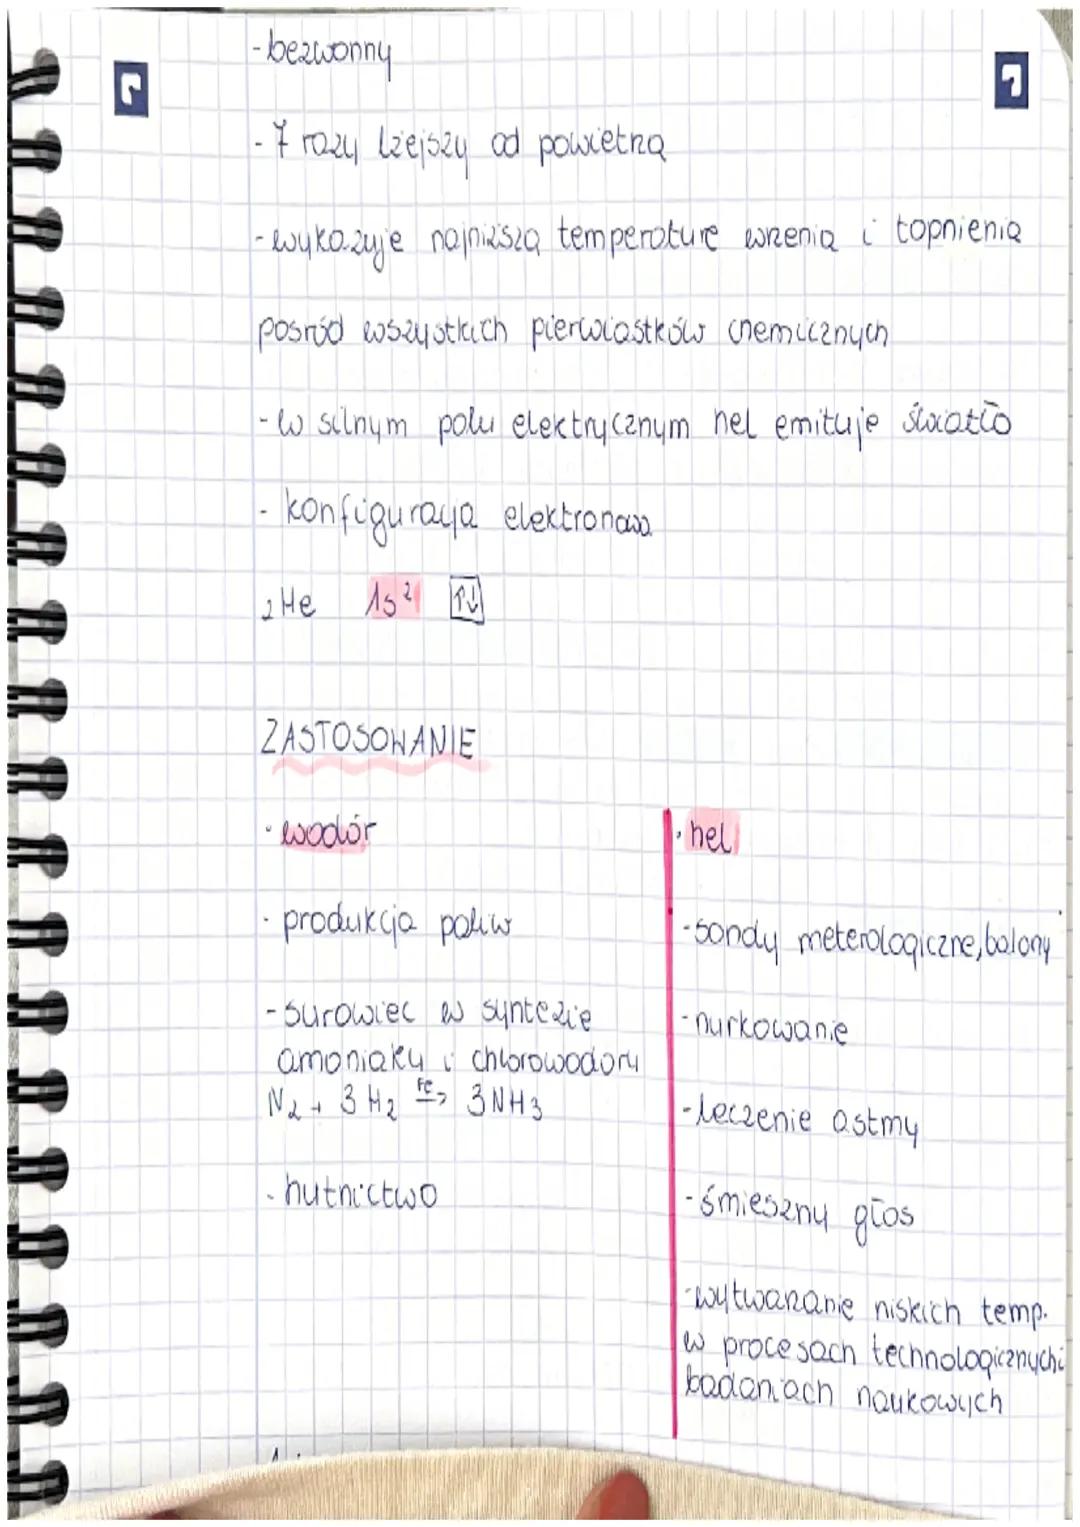 -bezwonny
- 7 razy lżejszy od powietrza
-wykazuje najniższą temperaturę wrzenia i topnienia
pośród wszystkich pierwiastków chemicznych
- w silnym polu elektrycznym hel emituje światło
- konfiguracja elektronowa
₂He 1s² ↑↓
ZASTOSOWANIE
· wodór
· produkcja paliw
-surowiec w syntezie
amoniaku i chlorowodoru
N₂ + 3 H₂ Fe→ 3NH₃
- hutnictwo
· hel
-sondy meterologiczne, balony
-nurkowanie
-leczenie astmy
-śmieszny głos
-wytwarzanie niskich temp.
w procesach technologicznych i
badaniach naukowych